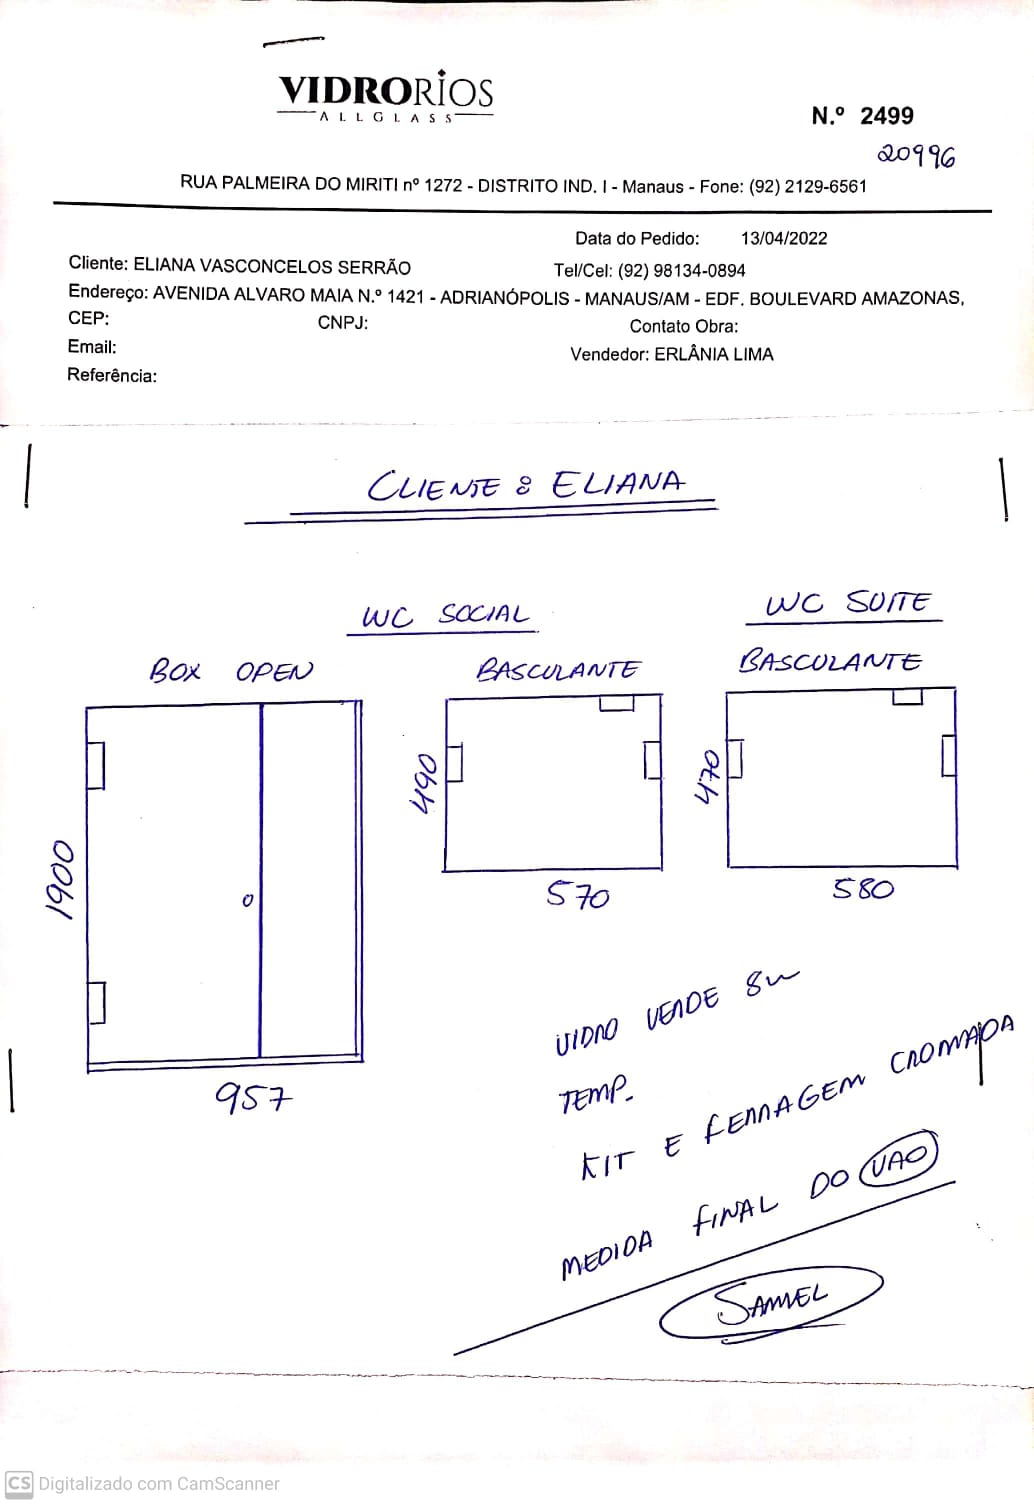 VIDRORIOS
ALLGLASS
N.º 2499
20996
RUA PALMEIRA DO MIRITI nº 1272 - DISTRITO IND. I - Manaus - Fone: (92) 2129-6561
Data do Pedido: 13/04/2022
Cliente: ELIANA VASCONCELOS SERRÃO Tel/Cel: (92) 98134-0894
Endereço: AVENIDA ALVARO MAIA N.º 1421 - ADRIANÓPOLIS - MANAUS/AM - EDF. BOULEVARD AMAZONAS,
CEP: CNPJ: Contato Obra:
Email: Vendedor: ERLÂNIA LIMA
Referência:
CLIENTE : ELIANA
WC SOCIAL WC SUITE
BOX OPEN BASCULANTE BASCULANTE
1900 490 470
957 570 580
VIDRO VERDE 8m
TEMP.
KIT E FERRAGEM CROMADA
MEDIDA FINAL DO VAO
SAMUEL
CS Digitalizado com CamScanner